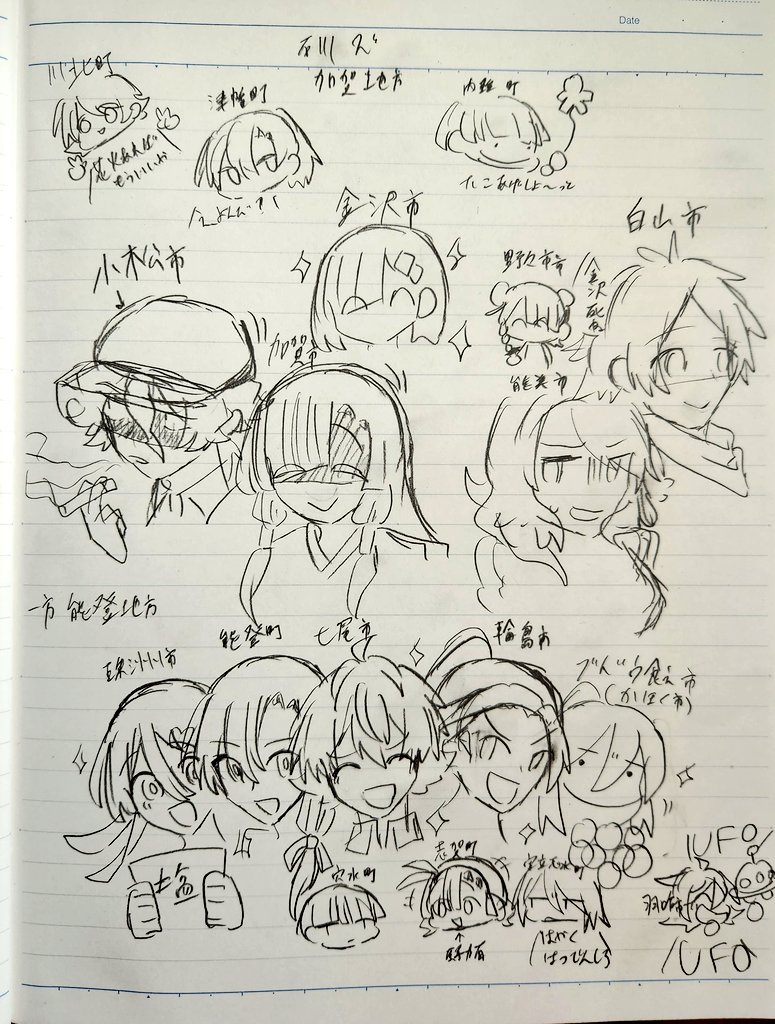 Date
石川ズ
加賀地方
川北町
津幡町
内灘町
花火あれば
もういいや
たこあげしよ〜っと
金沢市
白山市
小松市
野々市市
加賀市
能美市
一方 能登地方
珠洲市
能登町
七尾市
輪島市
ぶどう食え市
(かほく市)
穴水町
志賀町
宝達志水町
羽咋市
はやく
はつでんしろ
UFO
UFO